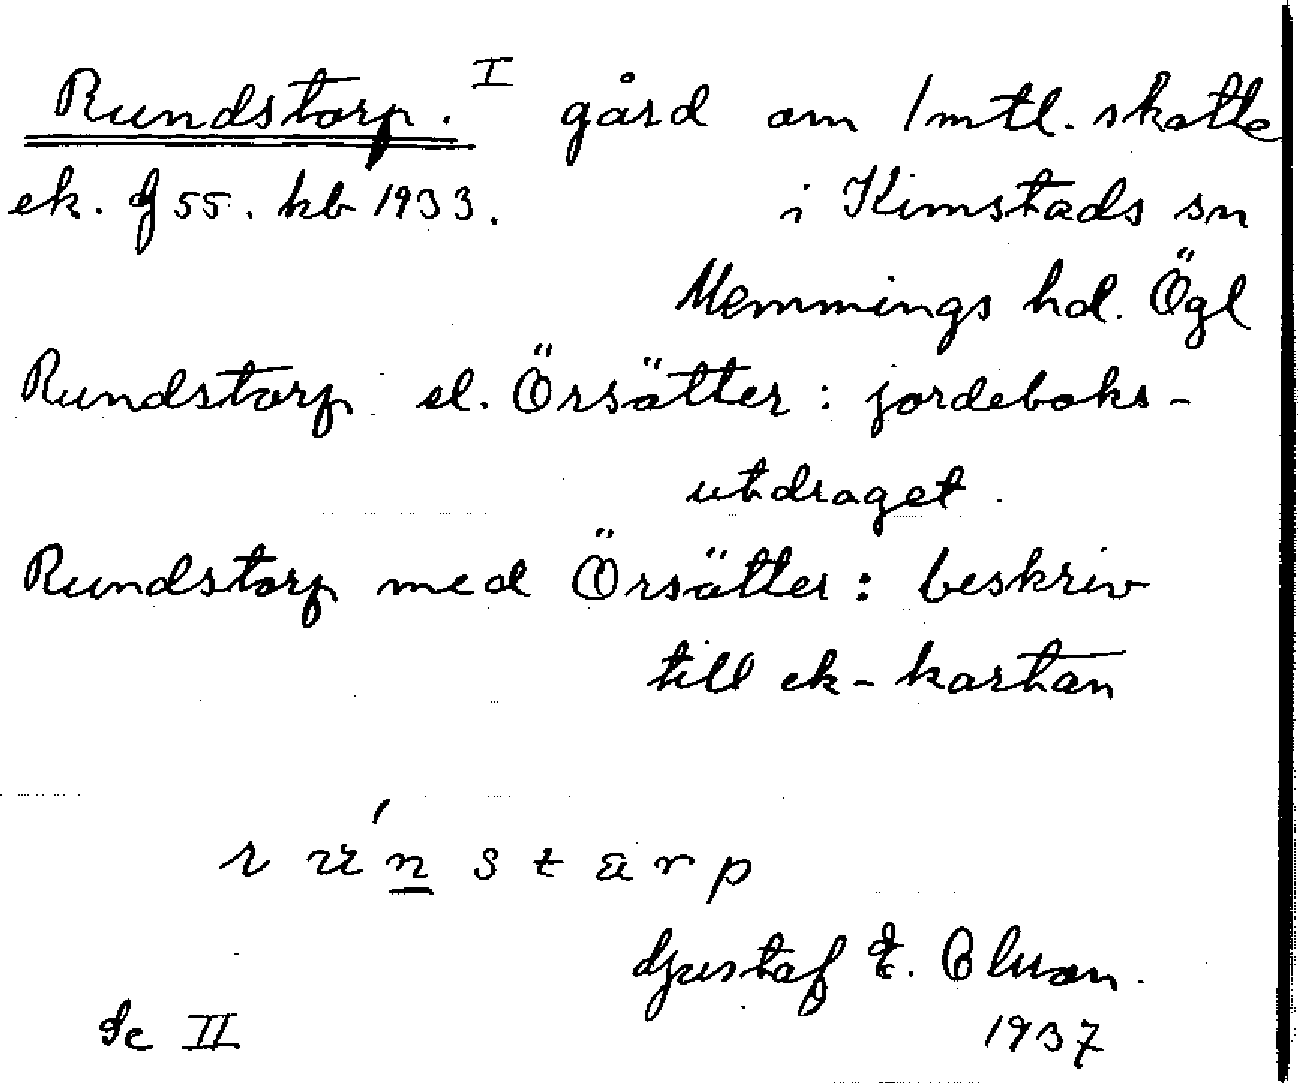 Rundstorp. I gård om 1 mtl. skatte
ek. G 55. hb 1933. i Kimstads sn
Memmings hd. Ögl
Rundstorp el. Örsätter : jordeboks-
utdraget.
Rundstorp med Örsätter : beskriv
till ek-kartan
Gustaf E.
Se II 1937